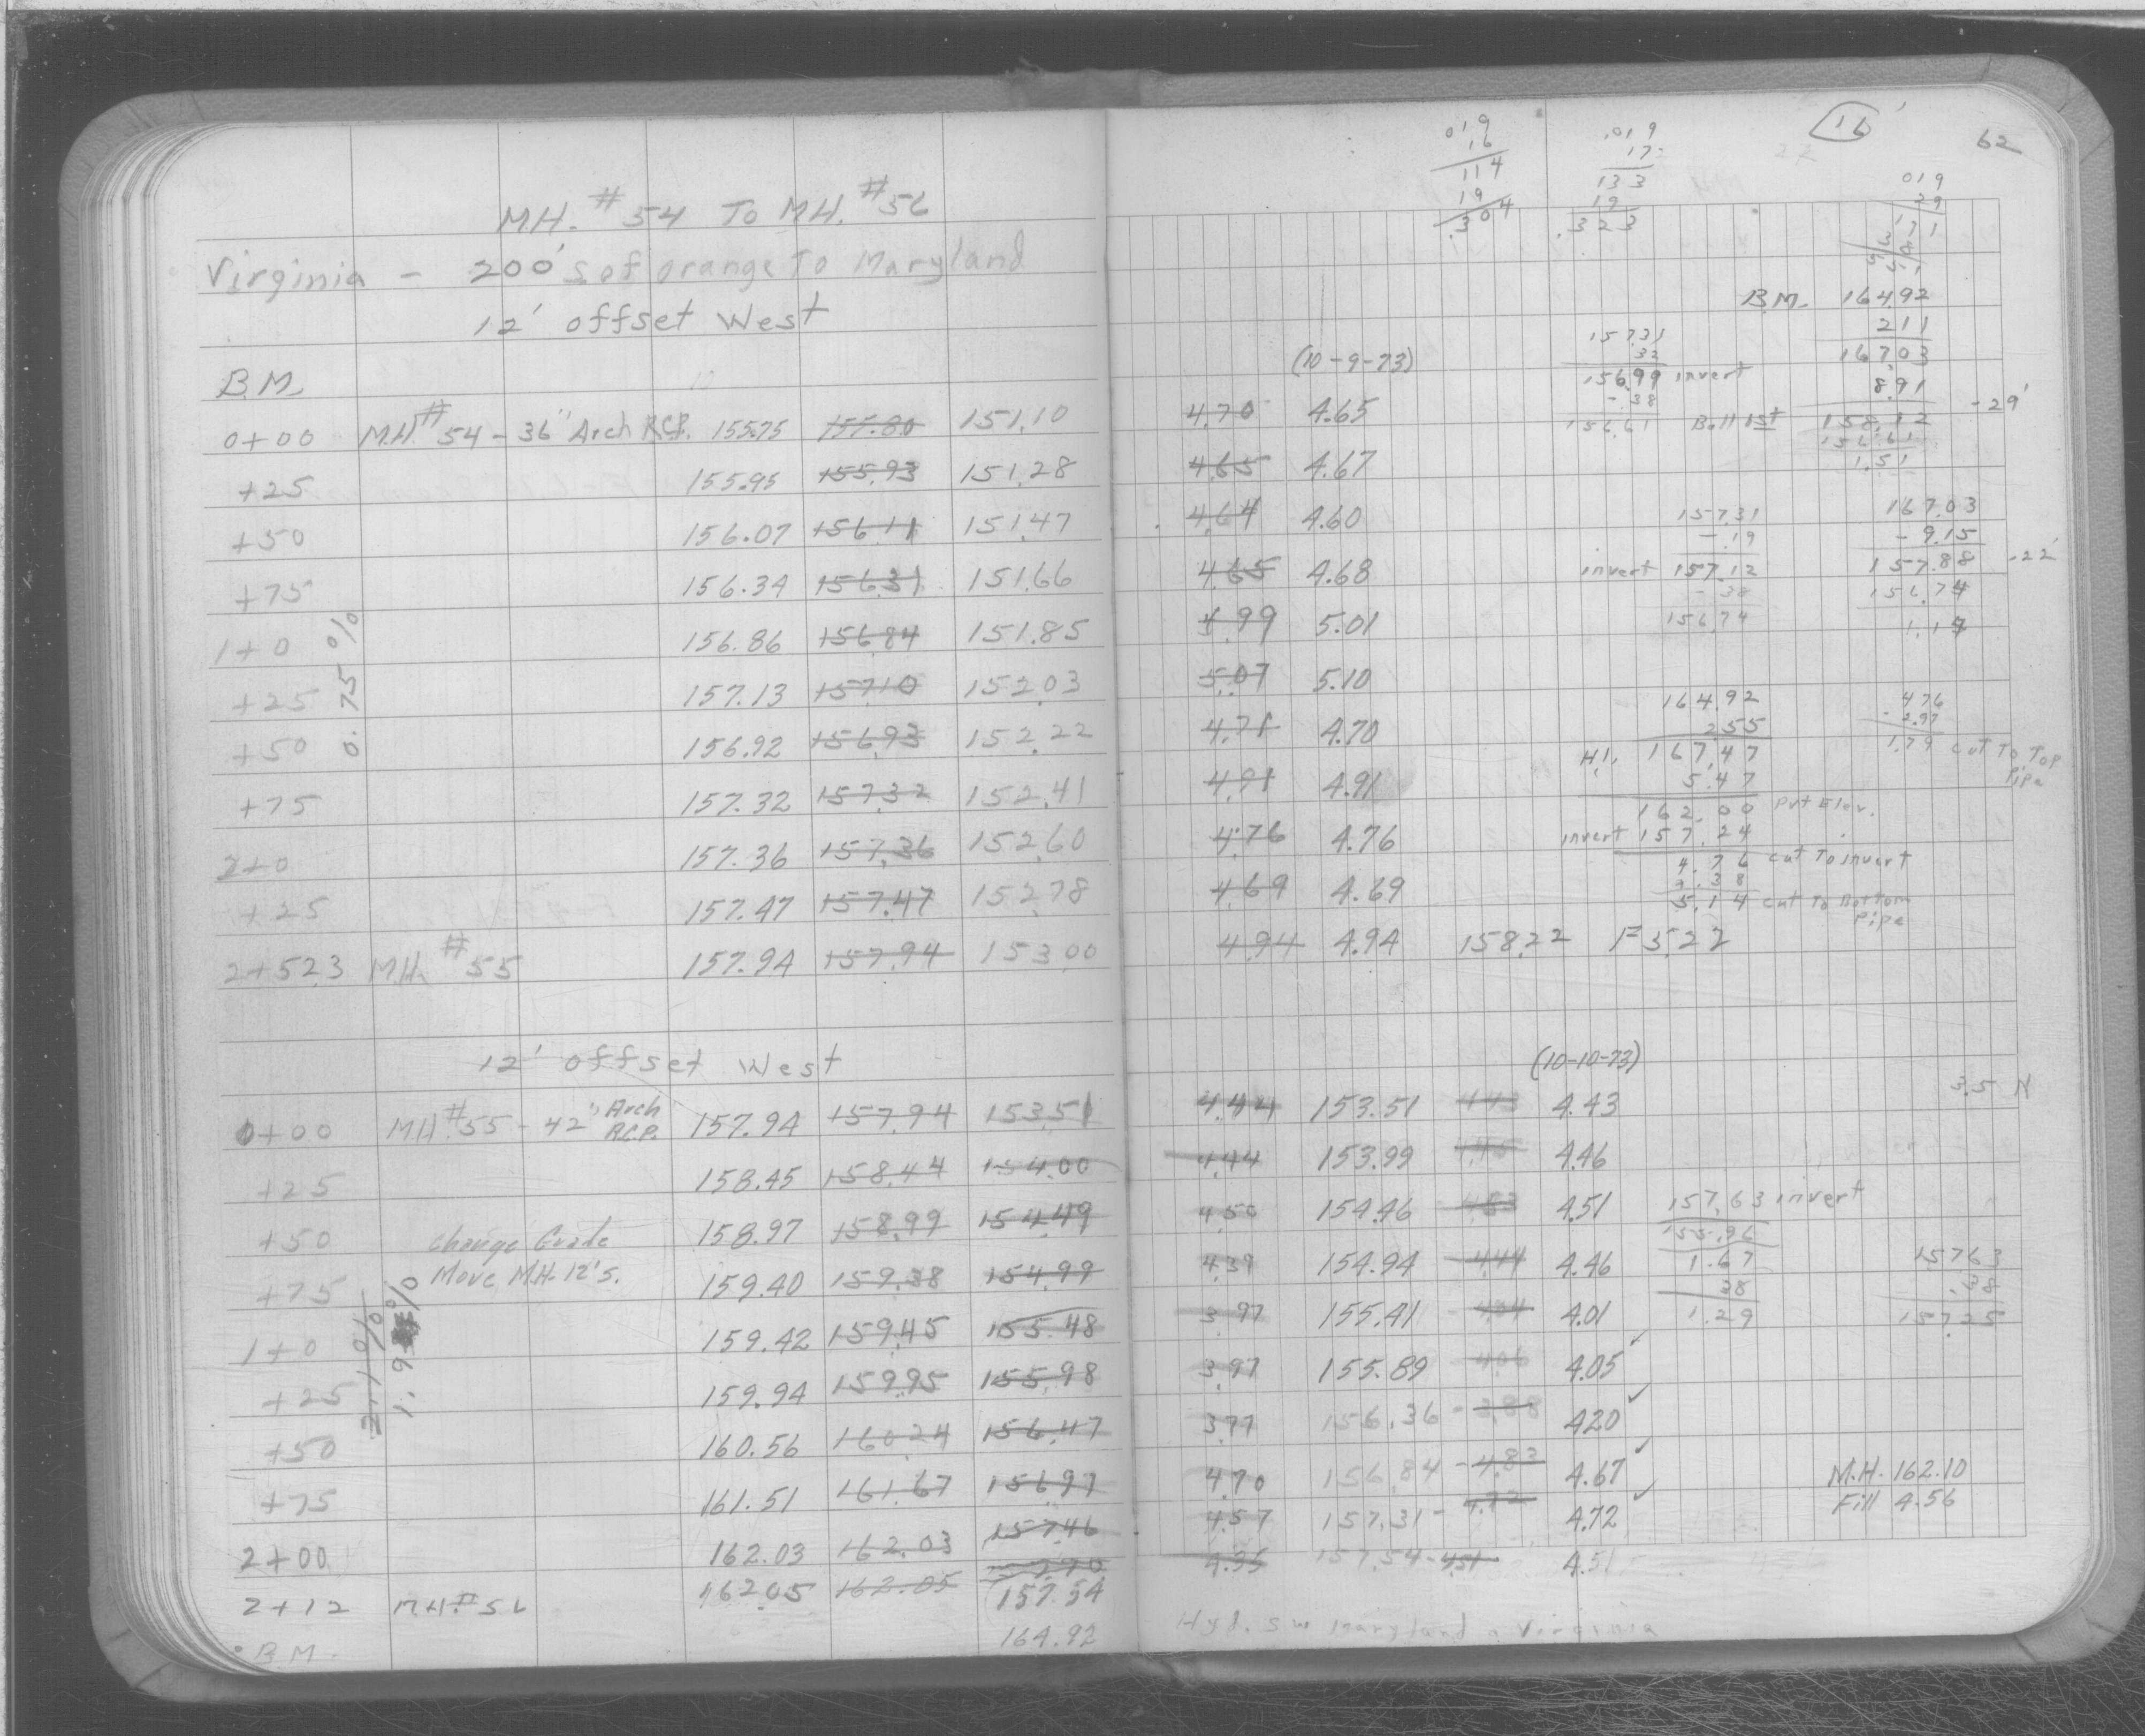 M.H. #54 To M.H. #56
Virginia - 200' S of Orange To Maryland
12' offset West
B.M.
0+00 M.H. #54 - 36" Arch R.C.P. 155.75 155.80 151.10
+25 155.95 155.93 151.28
+50 156.07 156.11 151.47
+75 156.34 156.31 151.66
1+0 156.86 156.84 151.85
+25 157.13 157.10 152.03
+50 156.92 156.93 152.22
+75 157.32 157.32 152.41
2+0 157.36 157.36 152.60
+25 157.47 157.47 152.78
2+52.3 M.H. #55 157.94 157.94 153.00
0.75%
12' offset West
0+00 MH. #55 - 42" Arch R.C.P. 157.94 157.94 153.51
+25 158.45 158.44 154.00
+50 158.97 158.99 154.49
Change Grade
Move M.H. 12' S.
+75 159.40 159.38 154.99
1+0 159.42 159.45 155.48
+25 159.94 159.95 155.98
+50 160.56 160.24 156.47
+75 161.51 161.67 156.97
2+00 162.03 162.03 157.46
2+12 M.H. #56 162.05 162.05 157.54
B.M. 164.92
1.9%
16
62
019
16
114
19
.304
.019
17
133
19
.323
019
29
171
B.M. 164.92
211
167.03
8.91
158.12 -29'
156.61
1.51
157.31
32
156.99 invert
- .38
156.61 Bott 1st
(10-9-73)
4.70 4.65
4.65 4.67
4.64 4.60
4.65 4.68
4.99 5.01
5.07 5.10
4.71 4.70
4.91 4.91
4.76 4.76
4.69 4.69
4.94 4.94 158.22 F 5.22
157.31
- .19
invert 157.12
- 38
156.74
167.03
- 9.15
157.88 -22'
156.74
1.14
164.92
2.55
H.I. 167.47
5.47
162.00 Pvt Elev.
invert 157.24
4.76 cut To invert
.38
5.14 cut To Bottom Pipe
4.76
- 2.97
1.79 cut To Top Pipe
(10-10-73)
3.5 N
4.44 153.51 443 4.43
4.44 153.99 4.46
4.50 154.46 453 4.51
4.39 154.94 4.44 4.46
3.97 155.41 4.04 4.01
3.97 155.89 406 4.05 ✓
3.77 156.36 - 3.88 4.20 ✓
4.70 156.84 - 4.83 4.67 ✓
4.57 157.31 - 4.72 4.72 ✓
4.35 157.54 - 4.51 4.51
157.63 invert
155.96
1.67
38
1.29
157.63
.38
157.25
M.H. 162.10
Fill 4.56
Hyd. SW Maryland & Virginia